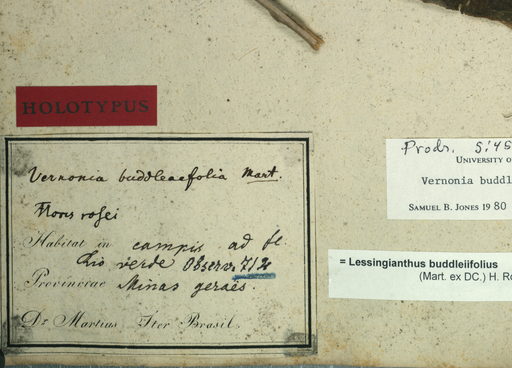 HOLOTYPUS
Vernonia buddleaefolia Mart.
Flores rosei
Habitat in campis ad fl.
Rio verde Observ. 712
Provinciae Minas geraës.
Dr Martius Iter Brasil.
Prodr. 5:45
UNIVERSITY O
Vernonia buddl
SAMUEL B. JONES 1980
= Lessingianthus buddleiifolius
(Mart. ex DC.) H. Ro